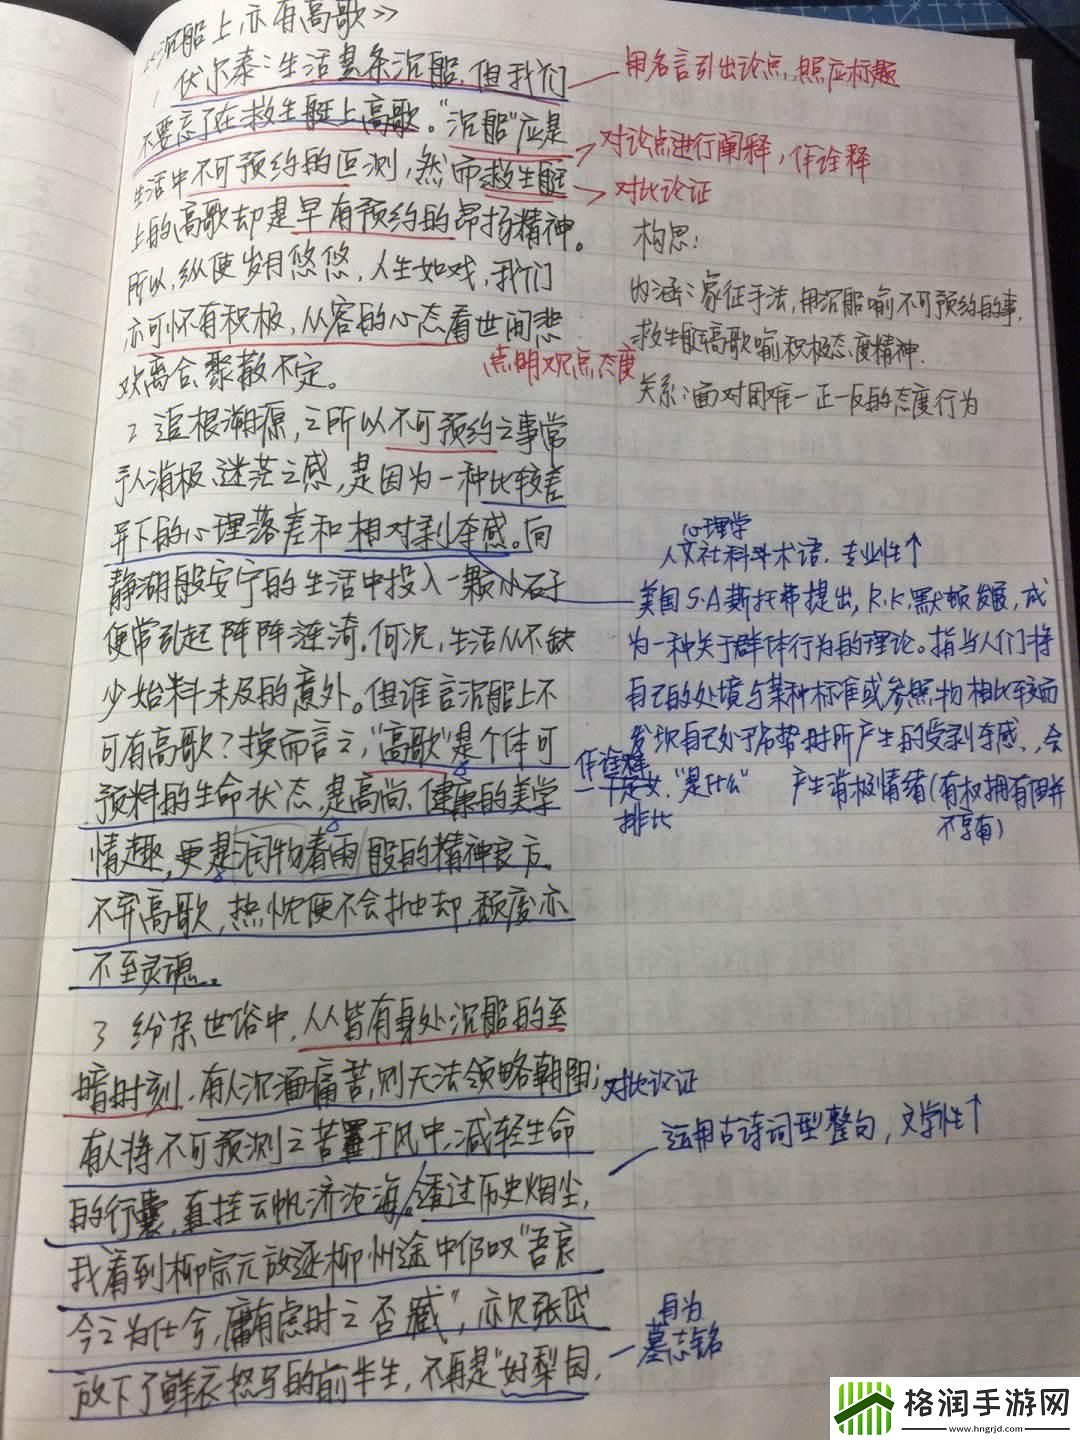 《沉船上,亦有高歌》
1 伏尔泰:生活是条沉船,但我们
不要忘了在救生艇上高歌。"沉船"应是
生活中不可预约的叵测,然而救生艇
上的高歌却是早有预约的昂扬精神。
所以,纵使岁月悠悠,人生如戏,我们
亦可怀有积极,从容的心态看世间悲
欢离合、聚散不定。
2 追根溯源,之所以不可预约之事常
予人消极、迷茫之感,是因为一种比较差
异下的心理落差和相对剥夺感。向
静湖般安宁的生活中投入一颗小石子
便常引起阵阵涟漪,何况,生活从不缺
少始料未及的意外。但谁言沉船上不
可有高歌?换而言之,"高歌"是个体可
预料的生命状态,是高尚、健康的美学
情趣,更是润物春雨般的精神良方。
不弃高歌,热忱便不会抽却,颓废亦
不至灵魂。
3 纷杂世俗中,人人皆有身处沉船的至
暗时刻,有人沉湎痛苦,则无法领略朝阳;
有人将不可预测之苦置于风中,减轻生命
的行囊,直挂云帆济沧海。透过历史烟尘,
我看到柳宗元放逐柳州途中仍叹"吾哀
今之为仕兮,庸有虑时之否臧",亦见张岱
放下了鲜衣怒马的前半生,不再是"好梨园,
用名言引出论点,照应标题
对论点进行阐释,作诠释
对比论证
构思:
内涵:象征手法,用沉船喻不可预约的事,
救生艇高歌喻积极态度精神.
关系:面对困难一正一反的态度行为
点明观点态度
心理学
人文社科学术语,专业性↑
美国S.A斯托弗提出,R.K.默顿发展,成
为一种关于群体行为的理论。指当人们将
自己的处境与某种标准或参照物相比较而
发现自己处于劣势时所产生的受剥夺感,会
产生消极情绪(有权拥有但并
不享有)
作诠释
下定义,"是什么"
排比
对比论证
运用古诗词型整句,文学性↑
自为
墓志铭
格润手游网
www.hngrjd.com